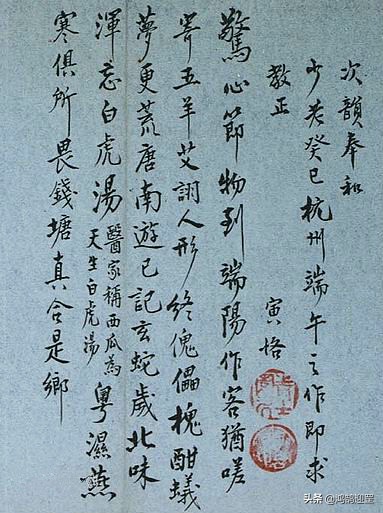 次韻奉和
少老癸巳杭州端午之作即求
教正
寅恪
驚心節物到端陽作客猶嗟
寄五羊艾詡人形終傀儡槐酣蟻
夢更荒唐南遊已記玄蛇歲北味
渾忘白虎湯醫家稱西瓜為天生白虎湯粵濕燕
寒俱所畏錢塘真合是鄉
头条 @鸿鹄迎罡